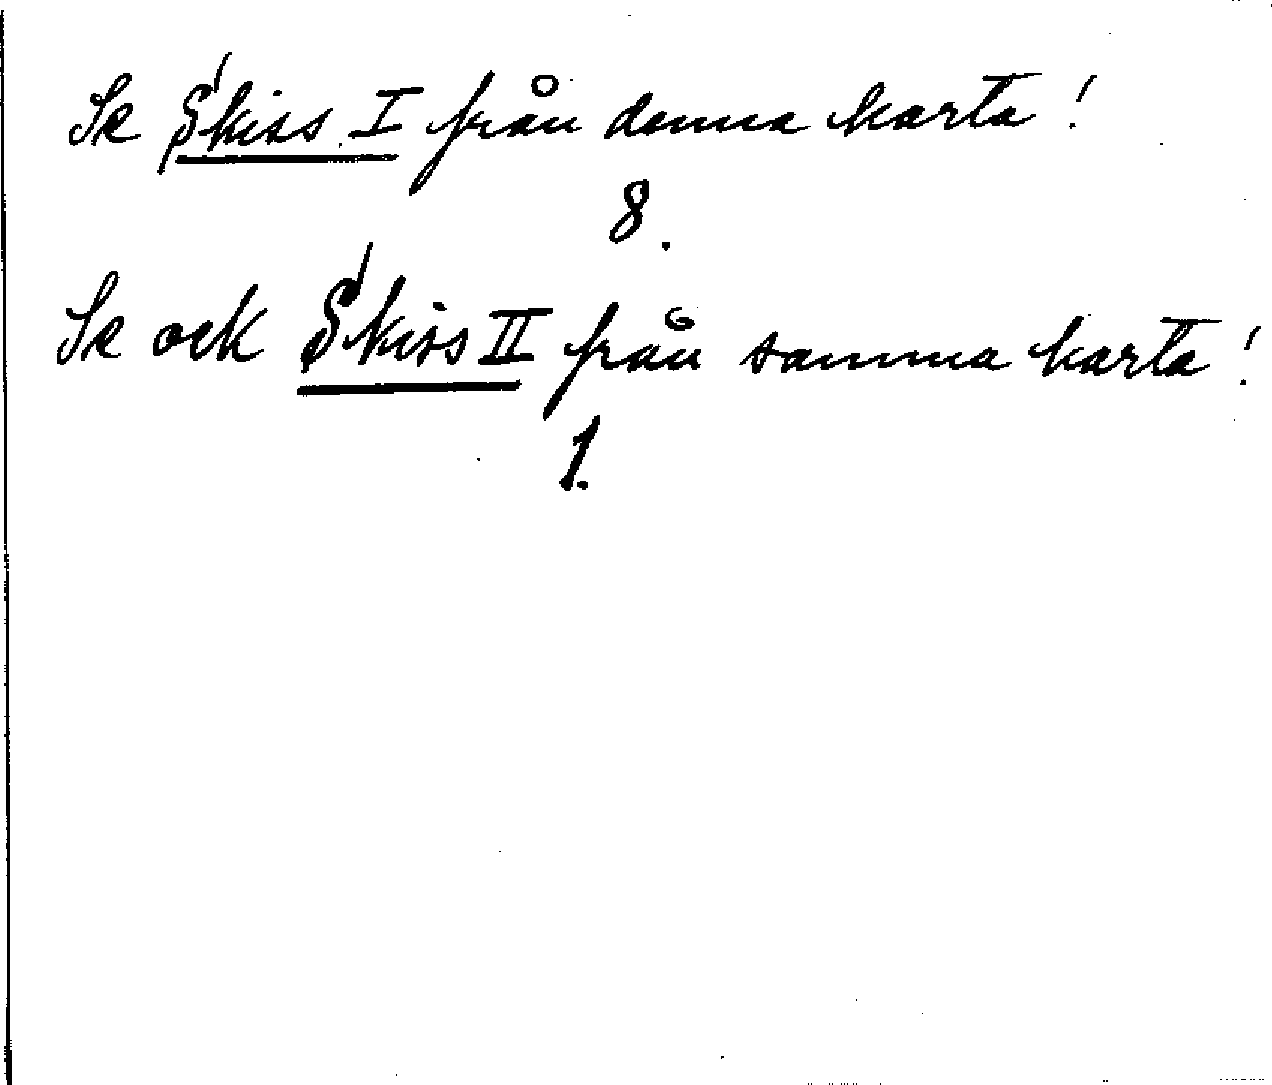 Se Skiss I från denna karta!
8.
Se ock Skiss II från samma karta!
1.